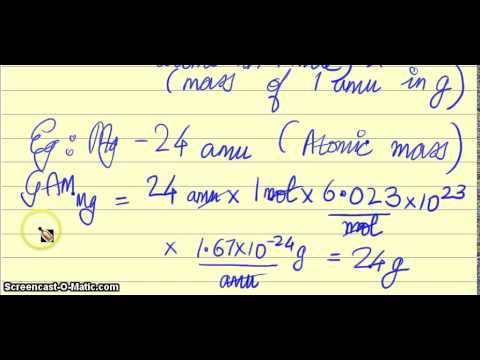 (mass of 1 amu in g)
Eg: Mg - 24 amu (Atomic mass)
GAM Mg = 24 amu × 1 mol × 6.023 × 10²³ / mol
× 1.67×10⁻²⁴ g / amu = 24 g
Screencast-O-Matic.com